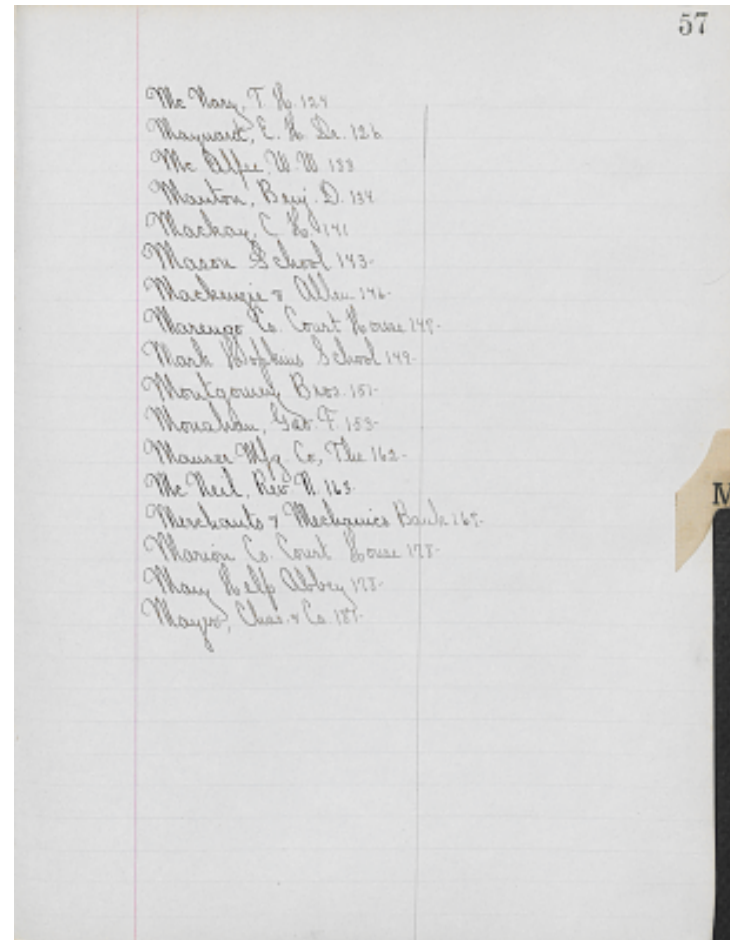 57
Mc Nary, T. H. 124
Maynard, E. H. Dr. 126
Mc Alfee, W. W. 133
Manton, Benj. D. 134
Mackay, C. H. 141
Mason School 143-
Mackenzie & Allen 146-
Marengo Co. Court House
Mark Hopkins School 149-
Montgomery Bros. 151-
Monahan, Geo. F. 153-
Maurer Mfg. Co, The 162-
Mc Neil, Rev. N. 163-
Merchants & Mechanics Bank
Marion Co. Court House
Mary Help Abbey
Mayer, Chas. & Co.
M